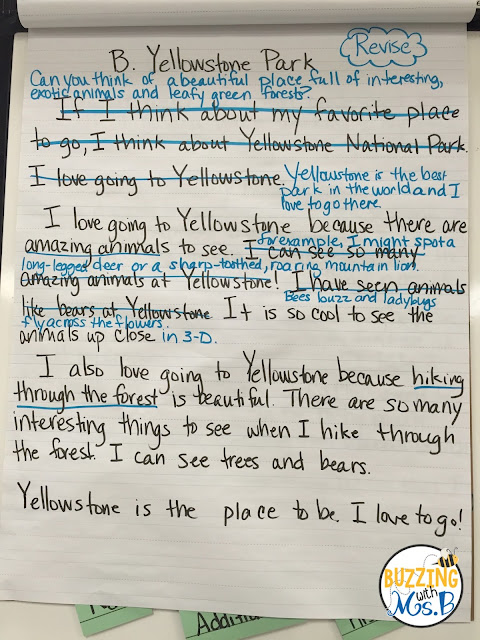 Revise
B. Yellowstone Park
Can you think of a beautiful place full of interesting,
exotic animals and leafy green forests?
If I think about my favorite place
to go, I think about Yellowstone National Park.
I love going to Yellowstone. Yellowstone is the best
park in the world and I
love to go there.
I love going to Yellowstone because there are
amazing animals to see. I can see so many
For example, I might spot a
long-legged deer or a sharp-toothed, roaring mountain lion.
amazing animals at Yellowstone! I have seen animals
like bears at Yellowstone
Bees buzz and ladybugs
fly across the flowers.
It is so cool to see the
animals up close in 3-D.
I also love going to Yellowstone because hiking
through the forest is beautiful. There are so many
interesting things to see when I hike through
the forest. I can see trees and bears.
Yellowstone is the place to be. I love to go!
BUZZING
with
Mrs. B